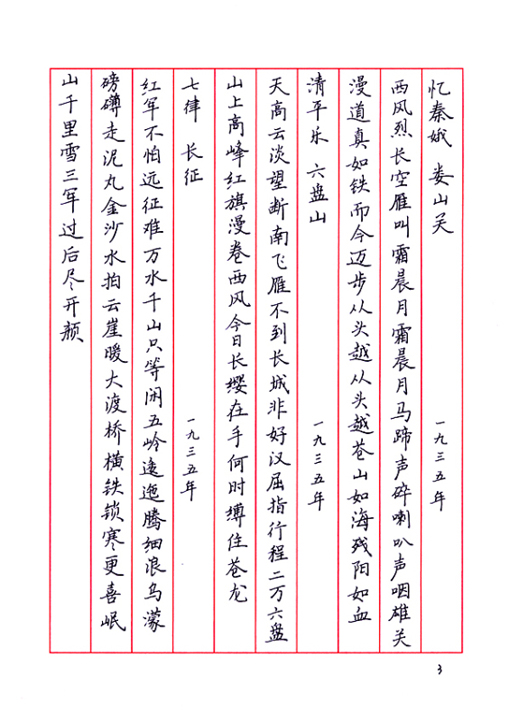 忆秦娥 娄山关 一九三五年
西风烈长空雁叫霜晨月霜晨月马蹄声碎喇叭声咽雄关
漫道真如铁而今迈步从头越从头越苍山如海残阳如血
清平乐 六盘山 一九三五年
天高云淡望断南飞雁不到长城非好汉屈指行程二万六盘
山上高峰红旗漫卷西风今日长缨在手何时缚住苍龙
七律 长征 一九三五年
红军不怕远征难万水千山只等闲五岭逶迤腾细浪乌濛
磅礴走泥丸金沙水拍云崖暖大渡桥横铁锁寒更喜岷
山千里雪三军过后尽开颜
3